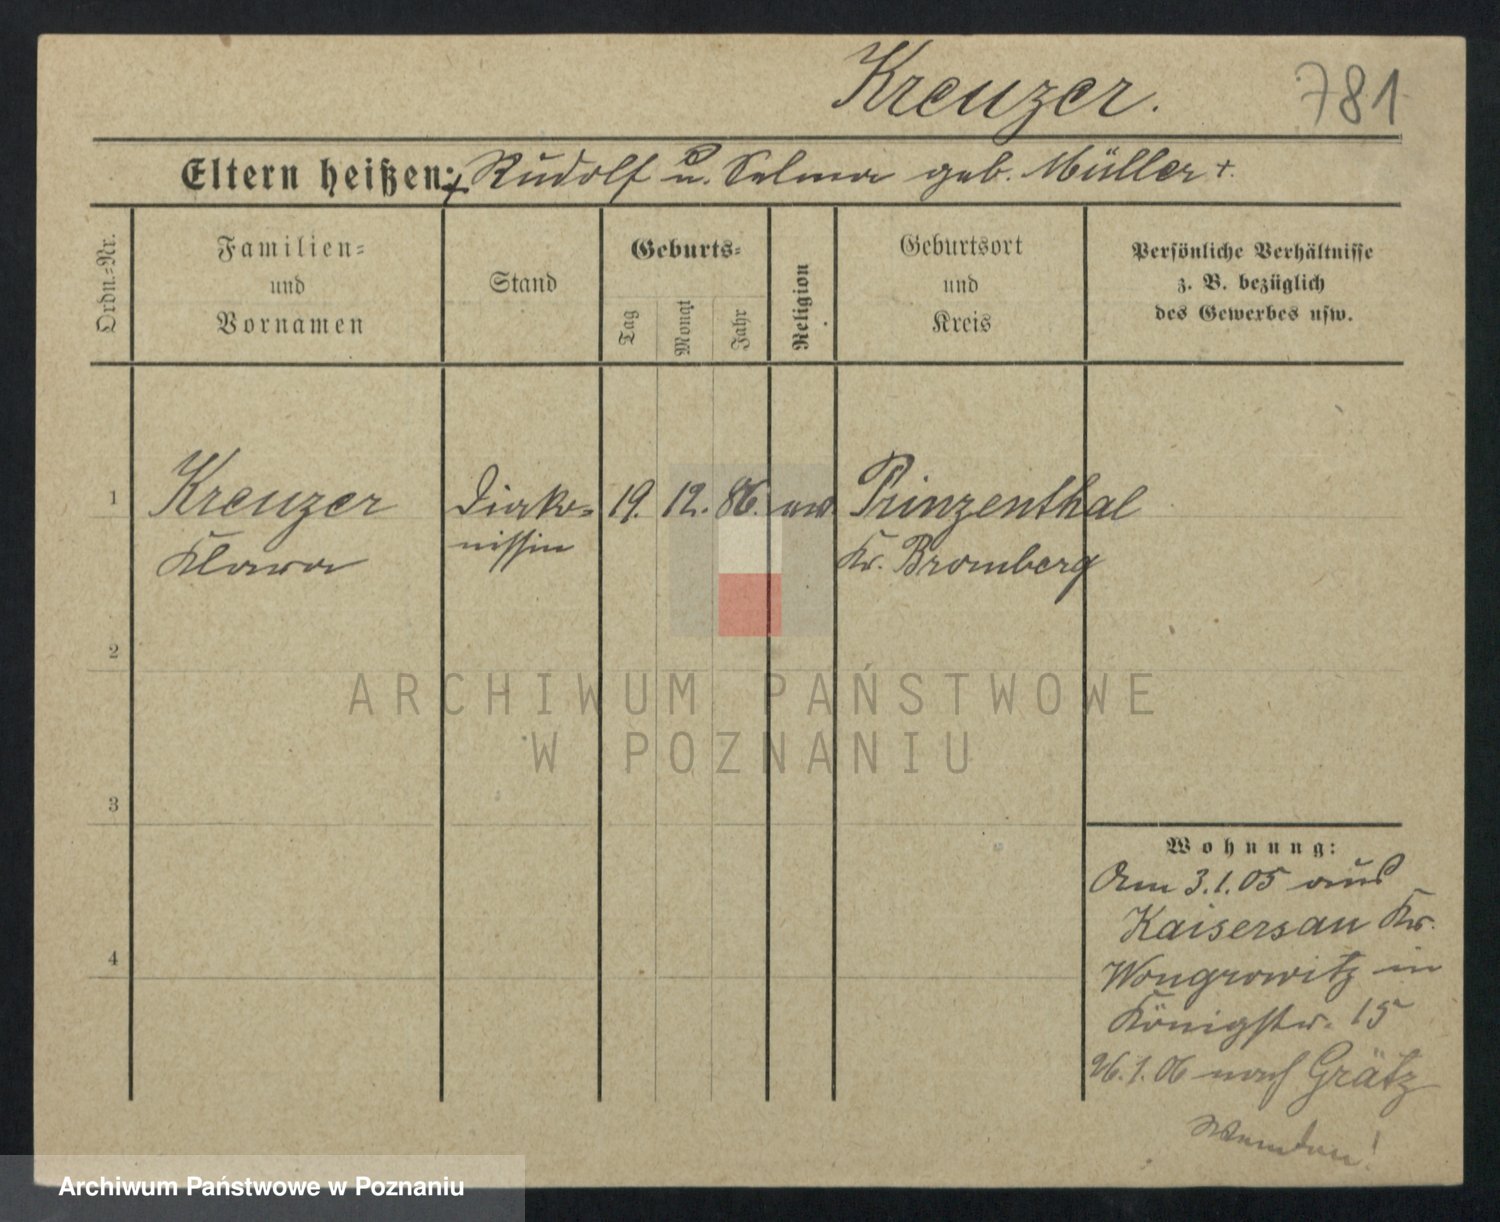 Kreuzer.
781
Eltern heißen: + Rudolf u. Selma geb. Müller +.
Ordn.-Nr.
Familien-
und
Vornamen
Stand
Geburts-
Tag
Monat
Jahr
Religion
Geburtsort
und
Kreis
Persönliche Verhältnisse
z. B. bezüglich
des Gewerbes usw.
1
Kreuzer
Klara
Diako-
nissin
19. 12. 86.
ev.
Prinzenthal
Kr. Bromberg
2
3
4
Wohnung:
Am 3.1.05 aus
Kaisersau Kr.
Wongrowitz in
Königstr. 15
26.1.06 nach Grätz
Wenden!
ARCHIWUM PAŃSTWOWE
W POZNANIU
Archiwum Państwowe w Poznaniu